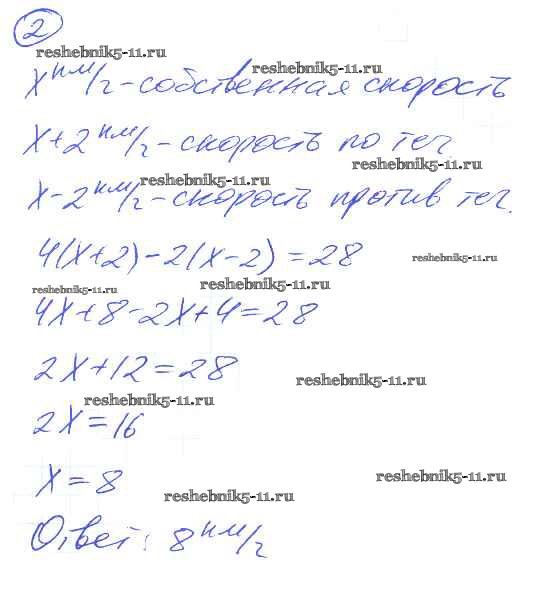 2
reshebnik5-11.ru
x км/г - собственная скорость
reshebnik5-11.ru
x+2 км/г - скорость по теч
reshebnik5-11.ru
x-2 км/г - скорость против теч.
reshebnik5-11.ru
4(x+2)-2(x-2)=28
reshebnik5-11.ru
reshebnik5-11.ru
reshebnik5-11.ru
4x+8-2x+4=28
2x+12=28
reshebnik5-11.ru
reshebnik5-11.ru
2x=16
x=8
reshebnik5-11.ru
reshebnik5-11.ru
Ответ: 8 км/г